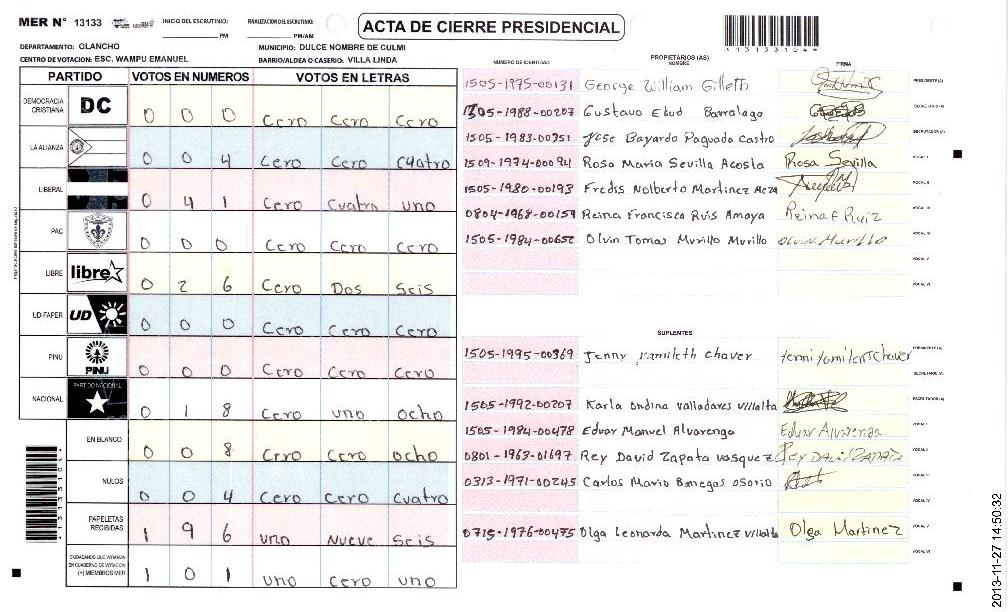 MER N° 13133
INICIO DEL ESCRUTINIO: PM
FINALIZACION DEL ESCRUTINIO: PM/AM
ACTA DE CIERRE PRESIDENCIAL
DEPARTAMENTO: OLANCHO
MUNICIPIO: DULCE NOMBRE DE CULMI
CENTRO DE VOTACION: ESC. WAMPU EMANUEL
BARRIO/ALDEA O CASERIO: VILLA LINDA
PARTIDO VOTOS EN NUMEROS VOTOS EN LETRAS
DEMOCRACIA CRISTIANA DC 0 0 0 Cero Cero Cero
LA ALIANZA 0 0 4 Cero Cero Cuatro
LIBERAL 0 4 1 Cero Cuatro uno
PAC 0 0 0 Cero Cero Cero
LIBRE libre 0 2 6 Cero Dos Seis
UD-FAPER UD 0 0 0 Cero Cero Cero
PINU PINU 0 0 0 Cero Cero Cero
NACIONAL PARTIDO NACIONAL 0 1 8 Cero uno ocho
EN BLANCO 0 0 8 Cero Cero ocho
NULOS 0 0 4 Cero Cero Cuatro
PAPELETAS RECIBIDAS 1 9 6 uno Nueve Seis
CIUDADANOS QUE VOTARON EN CUADERNO DE VOTACION (+) MIEMBROS MER 1 0 1 uno Cero uno
NUMERO DE IDENTIDAD PROPIETARIOS (AS) NOMBRE FIRMA
1505-1975-00131 George William Gilleth PRESIDENTE(A)
1505-1988-00207 Gustavo Ebud Barralaga SECRETARIO(A)
1505-1983-00351 Jose Bayardo Paguada Castro ESCRUTADOR(A)
1509-1974-00094 Rosa Maria Sevilla Acosta Rosa Sevilla VOCAL I
1505-1980-00193 Fredis Nolberto Martinez VOCAL II
0804-1968-00159 Reina Francisca Ruis Amaya Reina F Ruiz VOCAL III
1505-1984-00652 Olvin Tomas Murillo Murillo olvin Murillo VOCAL IV
VOCAL V
VOCAL VI
SUPLENTES
1505-1995-00369 Jenny Yamileth Chaver PRESIDENTE(A)
SECRETARIO(A)
1505-1992-00207 Karla ondina valladares villalta ESCRUTADOR(A)
1505-1984-00478 Edvar Manuel Alvarenga Edvar Alvarenga VOCAL I
0801-1963-01697 Rey David Zapata vasquez Rey DAVID ZAPATA VOCAL II
0313-1971-00245 Carlos Mario Banegas osorio VOCAL III
VOCAL IV
0715-1976-00475 Olga Leonarda Martinez villalta Olga Martinez VOCAL V
VOCAL VI
2013-11-27 14:50:32